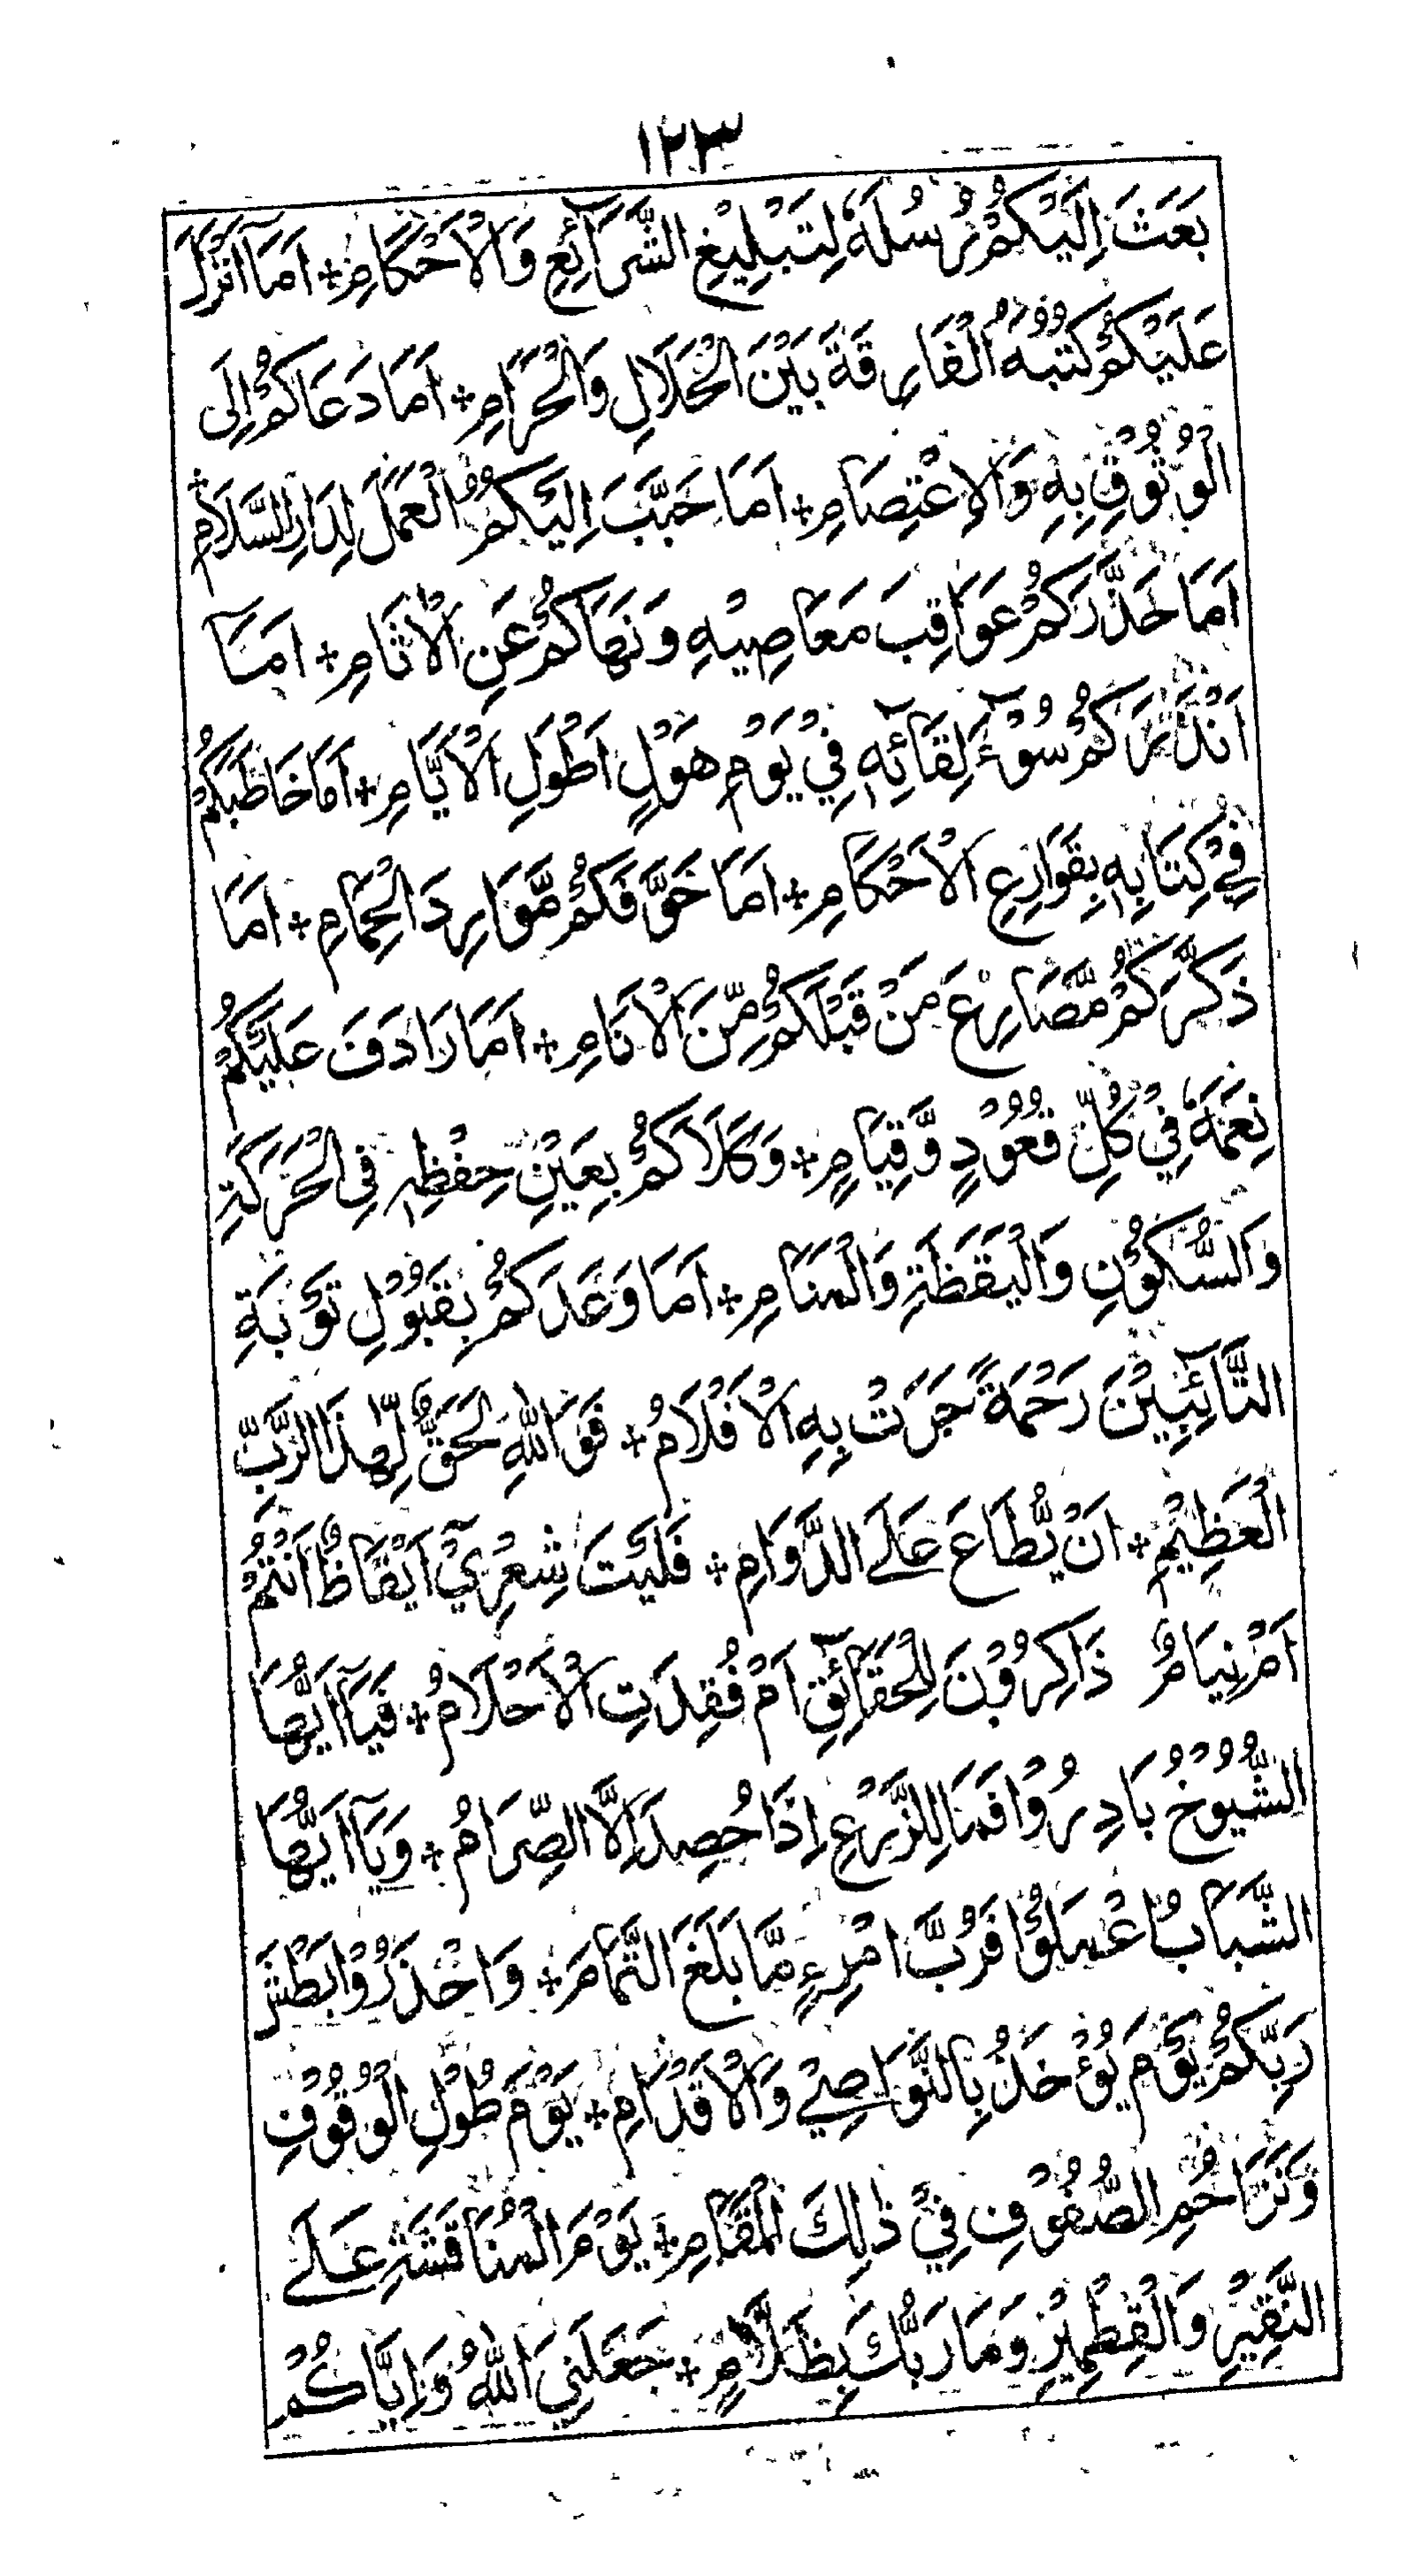 ١٢٣
بَعَثَ اِلَيْكُمْ رُسُلَهٗ لِتَبْلِيْغِ الشَّرَآئِعِ وَالْاَحْكَامِ + اَمَآ اَنْزَلَ
عَلَيْكُمْ كُتُبَهُ الْفَارِقَةَ بَيْنَ الْحَلَالِ وَالْحَرَامِ + اَمَا دَعَاكُمْ اِلَى
الْوُثُوْقِ بِهٖ وَالْاِعْتِصَامِ + اَمَا حَبَّبَ اِلَيْكُمُ الْعَمَلَ لِدَارِ السَّلَامِ +
اَمَا حَذَّرَكُمْ عَوَاقِبَ مَعَاصِيْهِ وَنَهَاكُمْ عَنِ الْاٰثَامِ + اَمَآ
اَنْذَرَكُمْ سُوْٓءَ لِقَآئِهٖ فِيْ يَوْمٍ هَوْلٍ اَطْوَلِ الْاَيَّامِ + اَمَا خَاطَبَكُمْ
فِيْ كِتَابِهٖ بِقَوَارِعِ الْاَحْكَامِ + اَمَا خَوَّفَكُمْ مَّوَارِدَ الْحِمَامِ + اَمَا
ذَكَّرَكُمْ مَّصَارِعَ مَنْ قَبْلَكُمْ مِّنَ الْاَنَامِ + اَمَا رَادَفَ عَلَيْكُمْ
نِعَمَهٗ فِيْ كُلِّ قُعُوْدٍ وَّقِيَامٍ + وَكَلَاَكُمْ بِعَيْنِ حِفْظِهٖ فِى الْحَرَكَةِ
وَالسُّكُوْنِ وَالْيَقَظَةِ وَالْمَنَامِ + اَمَا وَعَدَكُمْ بِقَبُوْلِ تَوْبَةِ
التَّآئِبِيْنَ رَحْمَةً جَرَتْ بِهِ الْاَقْلَامُ + فَوَاللّٰهِ لَحَقٌّ لِّهٰذَا الرَّبِّ
الْعَظِيْمِ + اَنْ يُّطَاعَ عَلَى الدَّوَامِ + فَلَيْتَ شِعْرِيْٓ اَيْقَاظٌ اَنْتُمْ
اَمْ نِيَامٌ ذَاكِرُوْنَ لِلْحَقَآئِقِ اَمْ فُقِدَتِ الْاَحْلَامُ + فَيَآ اَيُّهَا
الشُّيُوْخُ بَادِرُوْا فَمَا لِلزَّرْعِ اِذَا حُصِدَ اِلَّا الصِّرَامُ + وَيَآ اَيُّهَا
الشَّبَابُ اعْمَلُوْا فَرُبَّ امْرِءٍ مَّا بَلَغَ التَّمَامَ + وَاحْذَرُوْا بَطْشَ
رَبِّكُمْ يَوْمَ يُؤْخَذُ بِالنَّوَاصِيْ وَالْاَقْدَامِ + يَوْمَ طُوْلِ الْوُقُوْفِ
وَتَزَاحُمِ الصُّفُوْفِ فِيْ ذٰلِكَ الْمَقَامِ + يَوْمَ الْمُنَاقَشَةِ عَلَى
النَّقِيْرِ وَالْقِطْمِيْرِ وَمَا رَبُّكَ بِظَلَّامٍ + جَعَلَنِيَ اللّٰهُ وَاِيَّاكُمْ